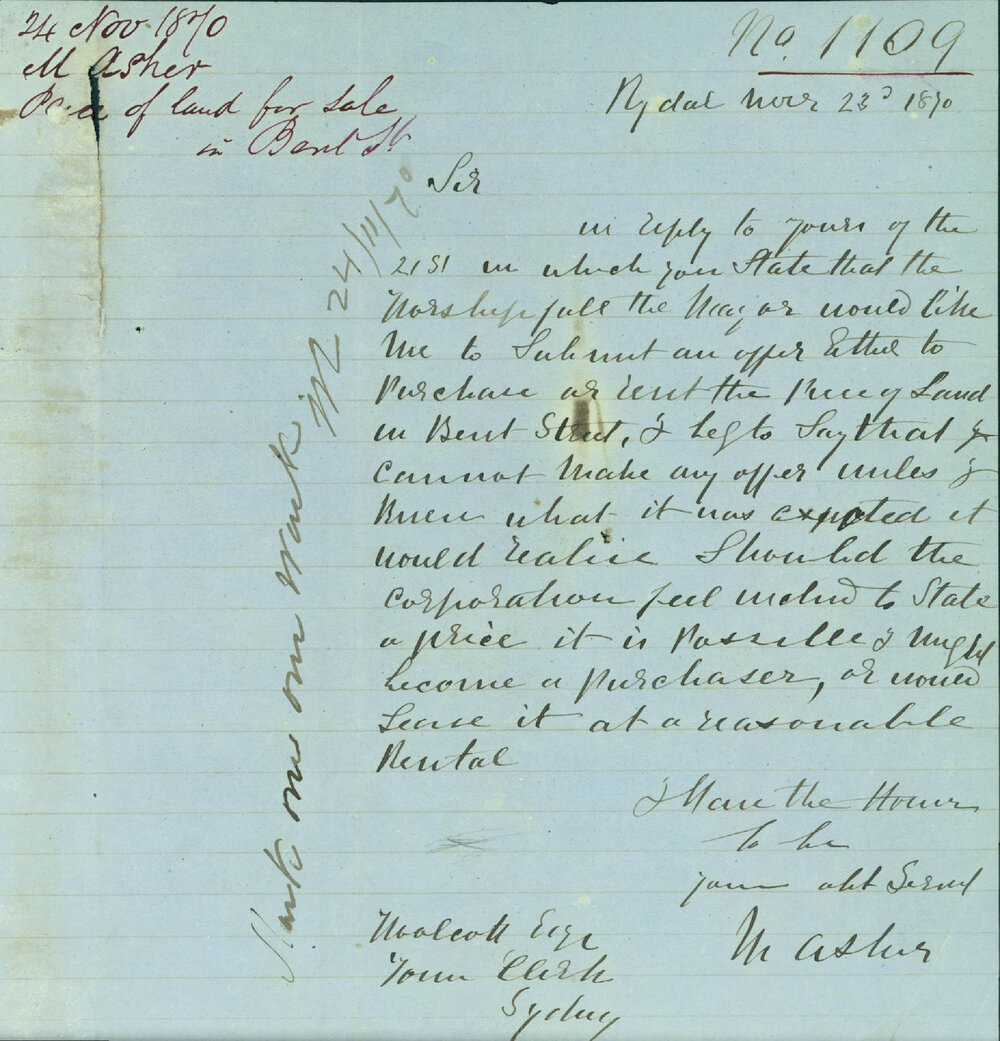 24 Nov 1870
M Asher
Piece of land for sale
in Bent St
No. 1109
Rydal Novr 23d 1870
Sir
in reply to yours of the
21st in which you State that the
Worshipfull the Mayor would like
me to Submit an offer Either to
Purchase or rent the Piece of Land
in Bent Street, I beg to Say that I
cannot make any offer unless I
Knew what it was expected it
would realise Should the
corporation feel inclind to State
a price it is Possible I might
become a purchaser, or would
Lease it at a reasonable
Rental
I Have the Honor
to be
your obt Servt
M Asher
Woolcott Esqr
Town Clerk
Sydney
24/11/70